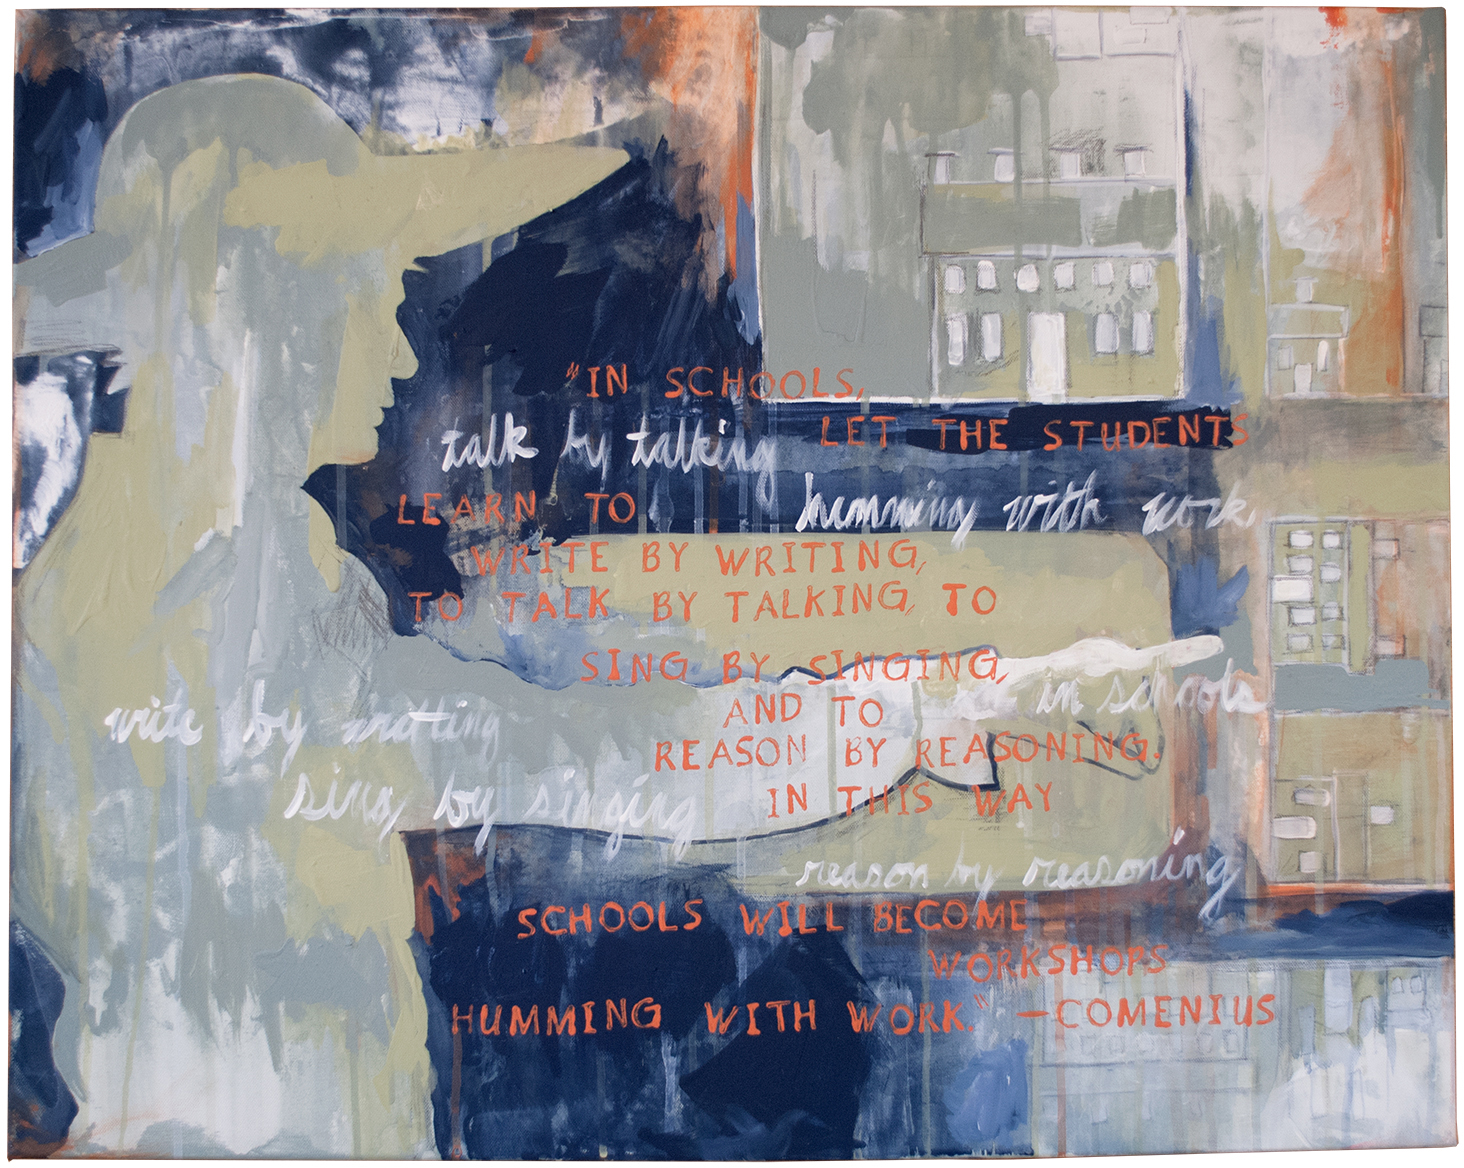 "IN SCHOOLS,
talk by talking LET THE STUDENTS
LEARN TO humming with work
WRITE BY WRITING,
TO TALK BY TALKING, TO
SING BY SINGING,
in schools
AND TO
write by writting
REASON BY REASONING.
sing by singing IN THIS WAY
reason by reasoning
SCHOOLS WILL BECOME
WORKSHOPS
HUMMING WITH WORK." —COMENIUS